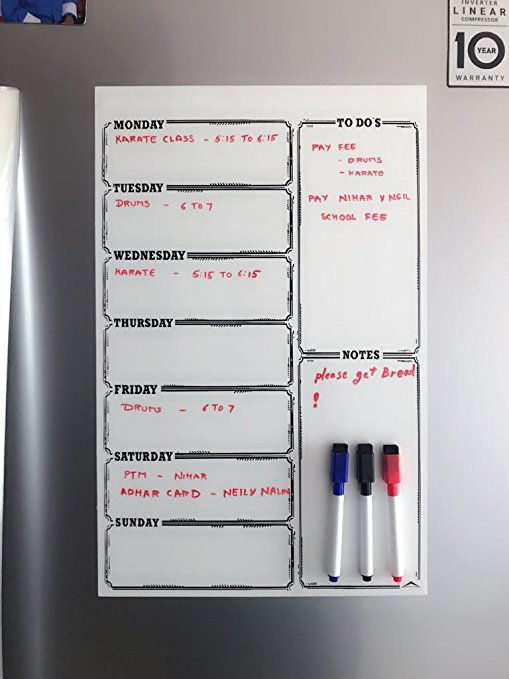 INVERTER
LINEAR
COMPRESSOR
10
YEAR
WARRANTY
MONDAY
KARATE CLASS - 5:15 TO 6:15
TUESDAY
DRUMS - 6 TO 7
WEDNESDAY
KARATE - 5:15 TO 6:15
THURSDAY
FRIDAY
DRUMS - 6 TO 7
SATURDAY
PTM - NIHAR
ADHAR CARD - NEIL
SUNDAY
TO DO'S
PAY FEE
- DRUMS
- KARATE
PAY NIHAR & NEIL
SCHOOL FEE
NOTES
please get Bread
!